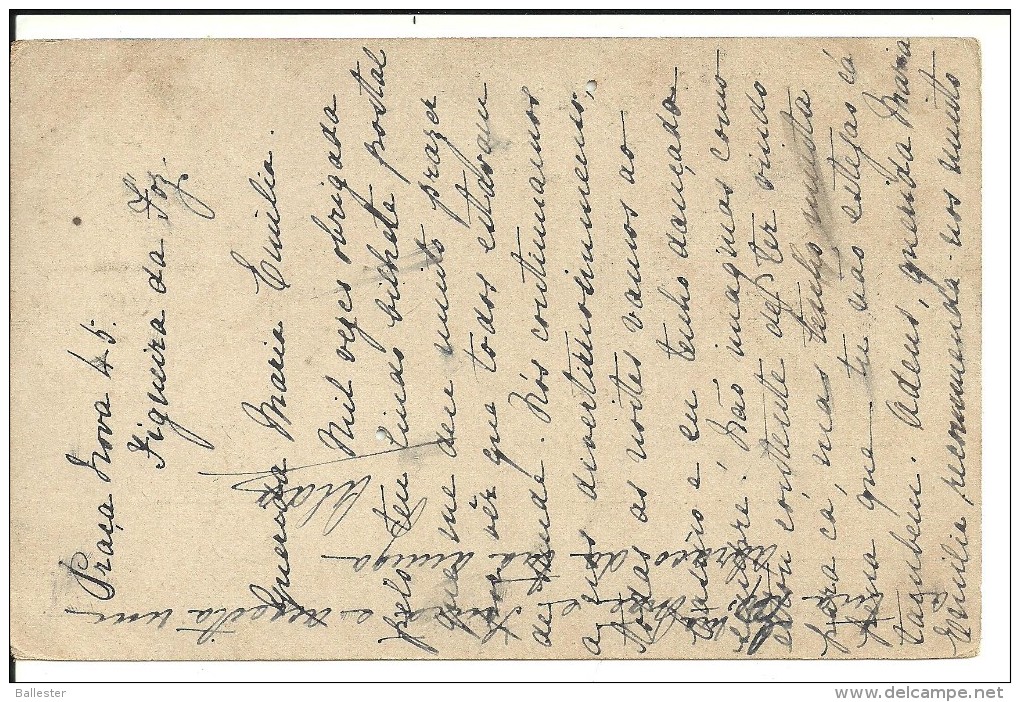 Praça Nova 45.
Figueira da Foz.
Querida Maria Emilia
Mil vezes obrigada
pelo teu lindo bilhete postal
que me deu muito prazer
por vêr que todos estavam
de saude. Nós continuamos
a nos divertirmosimmenso,
todas as noites vamos ao
Casino e eu tenho dançado
sempre! Não imaginas como
estou contente de ter vindo
para cá, mas tenho muita
pena que tu não estejas cá
tambem. Adeus, querida Maria
Emilia, recommenda-nos muito
a tua
e acceita um
abraço da tua amiga
Ballester
delcampe.net